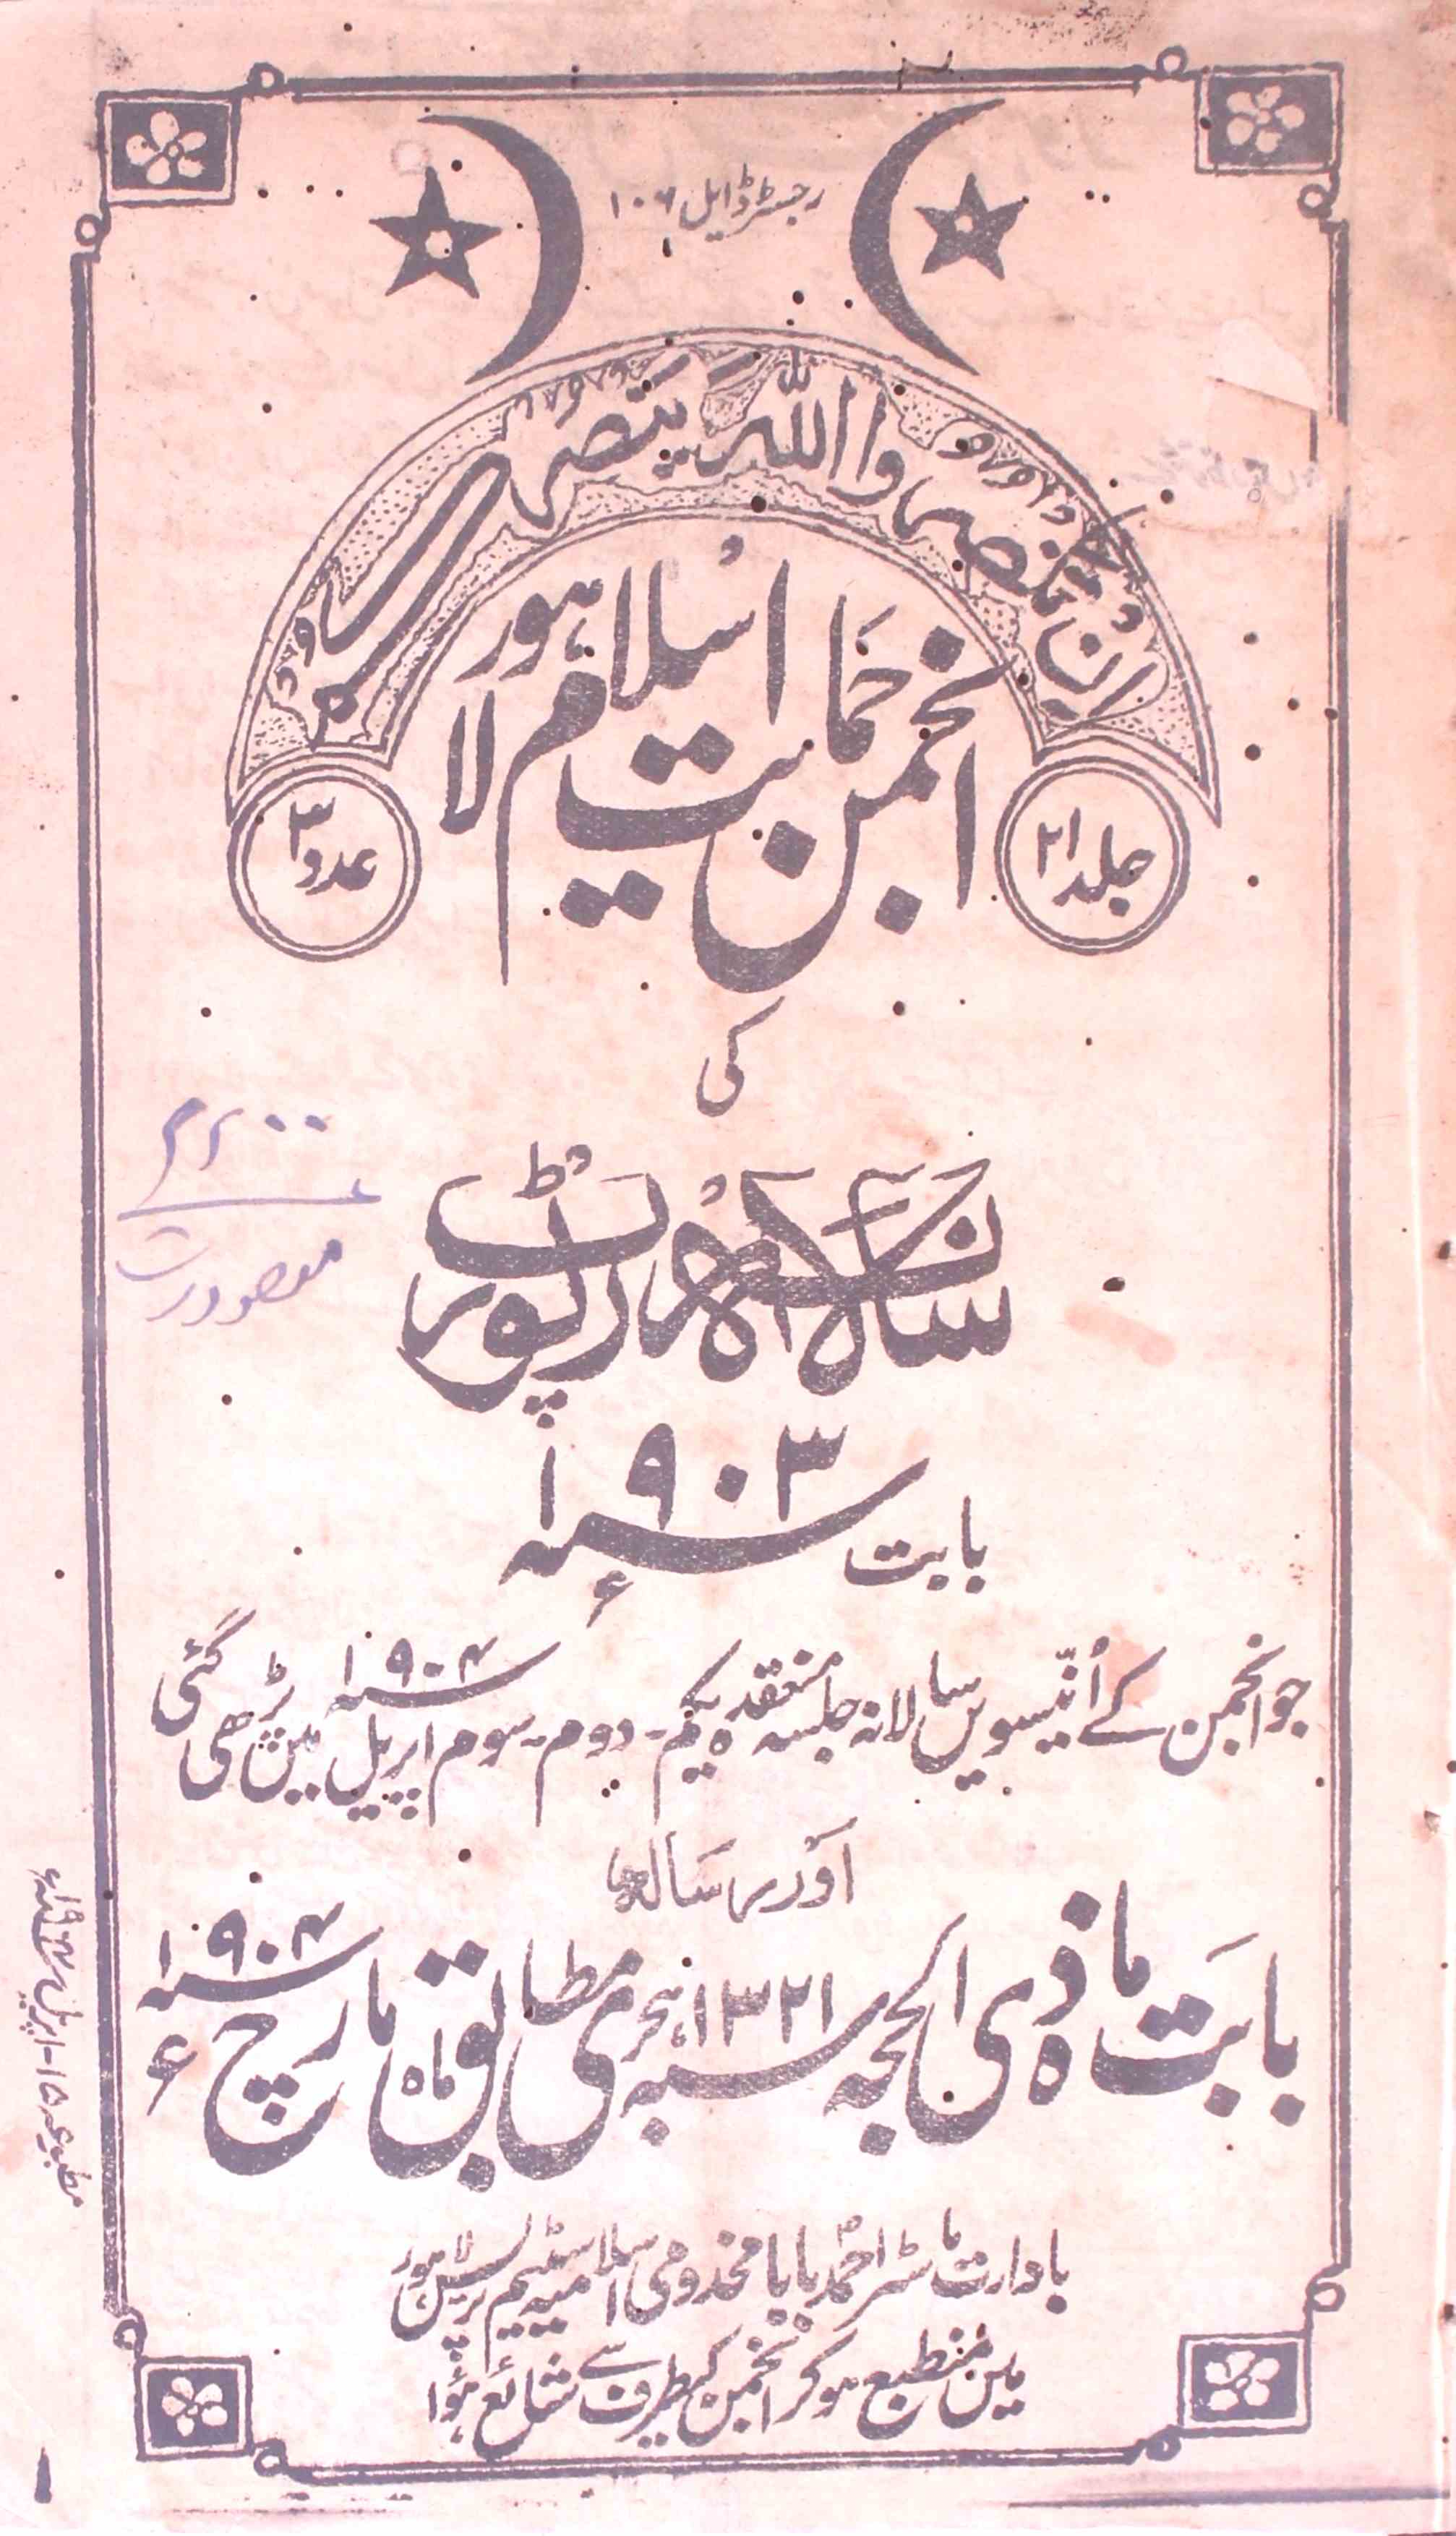 رجسٹرڈ ایل ۱۰۶
ان تنصروا اللہ ینصرکم
انجمن حمایت اسلام لاہور
جلد ۲۱
عدد ۳
کی
رپورٹ
بابت سنہ ۱۹۰۳ء
جو انجمن کے اُنّیسویں سالانہ جلسہ منعقدہ یکم - دوم - سوم اپریل سنہ ۱۹۰۴ میں پڑھی گئی
اور رسالہ
بابت ماہ ذی الحجہ سنہ ۱۳۲۱ ہجری مطابق ماہ مارچ سنہ ۱۹۰۴ء
بادارت ماسٹر احمد بابا مخدومی اسلامیہ سٹیم پریس لاہور
میں منطبع ہو کر انجمن کیطرف سے شائع ہوُا
مطبوعہ ۱۵ - اپریل
۱